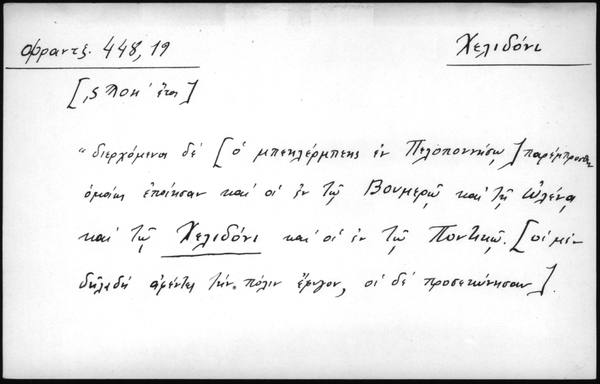 Φραντζ. 448,19 Χελιδόνι
[,ϛ ἔτει]
"διερχόμενοι δὲ [ὁ μπεκλέρμπεης ἐν Πελοποννήσῳ] παρέμπροσθεν
ὁμοίως ἐποίησαν καὶ οἱ ἐν τῷ Βουμερῷ καὶ τῇ Ὠλένᾳ
καὶ τῷ Χελιδόνι καὶ οἱ ἐν τῷ Ποντικῷ. [οἱ μὲν
δηλαδὴ ἀφέντες τὴν πόλιν ἔφυγον, οἱ δὲ προσεκύνησαν].